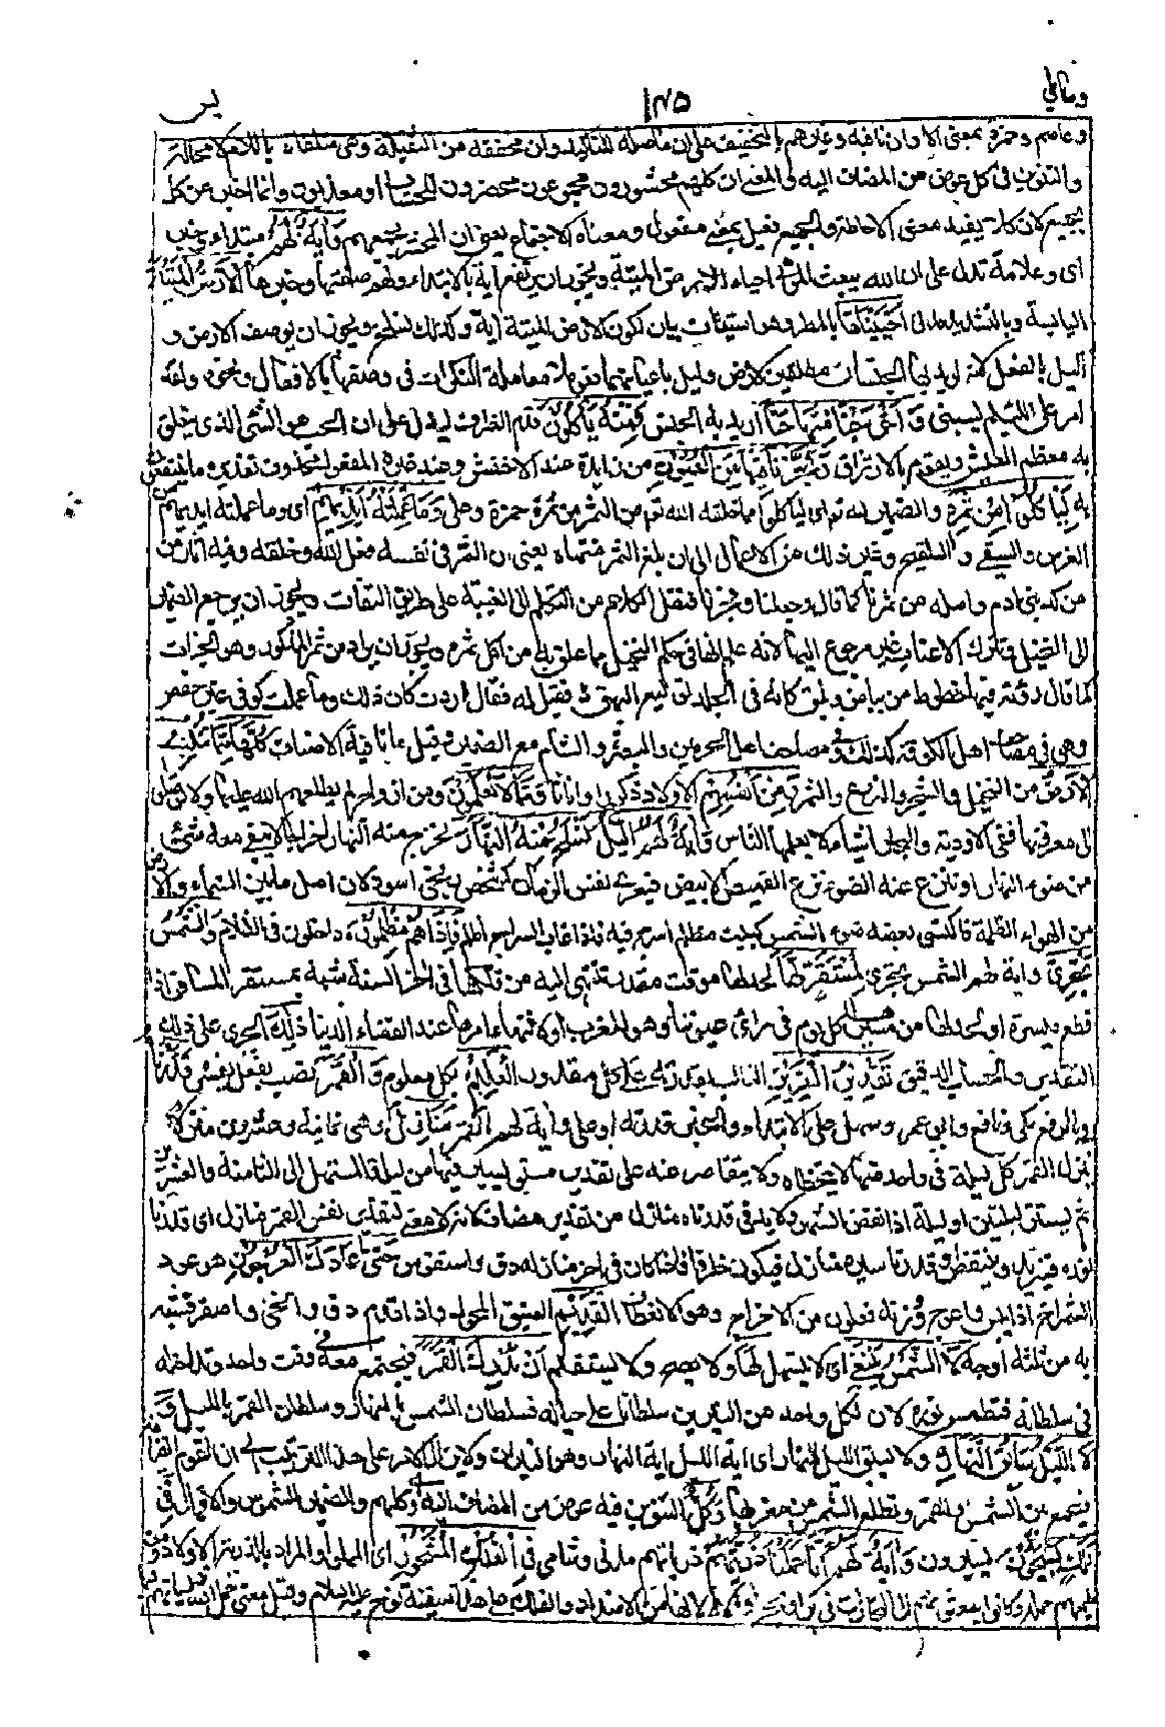 ومالي
١٢٥
يس
وعاصم وحمزة بمعنى الا وان نافية وغيرهم بالتخفيف على ان ما صلة للتاكيد وان مخففة من الثقيلة وهي متلقاة باللام لا محالة
والتنوين في كل عوض من المضاف اليه والمعنى ان كلهم محشورون مجموعون محضرون للحساب او معذبون وانما اخبر عن كل
بجميع لان كلا يفيد معنى الاحاطة والجميع فعيل بمعنى مفعول ومعناه الاجتماع يعني ان المحشر يجمعهم وَآيَةٌ لَهُمُ مبتداء وخبر
اى وعلامة تدل على ان الله يبعث الموتى احياء الارض الميتة ويجوز ان يرتفع اية بالابتداء ولهم صفتها وخبرها الْاَرْضُ الْمَيْتَةُ
اليابسة وبالتشديد مدنى اَحْيَيْنَاهَا بالمطر وهو استيناف بيان لكون الارض الميتة اية وكذلك نسلخ ويجوز ان يوصف الارض و
الليل بالفعل لانه اريد بهما الجنسان مطلقين لا ارض وليل باعيانهما فعوملا معاملة النكرات في وصفهما بالافعال ونحوه ولقد
امر على اللئيم يسبنى وَاَخْرَجْنَا مِنْهَا حَبًّا اريد به الجنس فَمِنْهُ يَأْكُلُوْنَ قدم الظرف ليدل على ان الحب هو الشئ الذى يتعلق
به معظم العيش ويقوم بالارتزاق وَفَجَّرْنَا فِيْهَا مِنَ الْعُيُوْنِ من زايدة عند الاخفش وعند غيره المفعول محذوف تقديره ما ينتفعون
به لِيَأْكُلُوْا مِنْ ثَمَرِهٖ والضمير لله تعالى اى لياكلوا مما خلقه الله تعالى من الثمر من ثمره حمزة وعلى وَمَا عَمِلَتْهُ اَيْدِيْهِمْ اى ومما عملته ايديهم من
الغرس والسقي والتلقيح وغير ذلك من الاعمال الى ان بلغ الثمر منتهاه يعنى ان الثمر في نفسه فعل الله وخلقه وفيه اثار من
من كد بنى ادم واصله من ثمرنا كما قال وجعلنا وفجرنا فنقل الكلام من التكلم الى الغيبة على طريق التفات ويجوز ان يرجع الضمير
الى النخيل ويترك الاعناب غير مرجوع اليها لانه علم انها في حكم النخيل مما علق به من اكل ثمره ويجوز ان يراد من ثمر المذكور وهو الجنات
كما قال رؤبة فيها خطوط من بياض وبلق كانه في الجلد توليع البهق فقيل له فقال اردت كان ذلك وما عملت كوفى غير حفص
وهي في مصاحف اهل الكوفة كذلك وفي مصاحف اهل الحرمين والبصرة والشام مع الضمير وقيل ما نافية الاصناف كُلَّهَا مِمَّا تُنْۢبِتُ
الْاَرْضُ من النخيل والشجر والزرع والثمر وَمِنْ اَنْفُسِهِمْ الاولاد ذكورا واناثا وَمِمَّا لَا يَعْلَمُوْنَ ومن ازواج لم يطلعهم الله عليها ولا توصلوا
الى معرفتها ففى الاودية والبحار اشياء لا يعلمها الناس وَاٰيَةٌ لَهُمُ الَّيْلُ نَسْلَخُ مِنْهُ النَّهَارَ نخرج منه النهار اخراجا لا يبقى معه شئ
من ضوء النهار او ننزع عنه الضوء نزع القميص الابيض فيعرى نفس الزمان كشخص زنجى اسود لان اصل ما بين السماء والارض
من الهواء الظلمة فاكتسى بعضه ضوء الشمس كبيت مظلم اسرج فيه فاذا غاب السراج اظلم فَاِذَا هُمْ مُظْلِمُوْنَ داخلون في الظلام وَالشَّمْسُ
تَجْرِىْ واية لهم الشمس تجرى لِمُسْتَقَرٍّ لَهَا لحد لها موقت مقدر تنتهى اليه من فلكها في اخر السنة شبه بمستقر المسافر اذا
قطع مسيره او لحد لها من مسيرها كل يوم في مراى عيوننا وهو المغرب او لانتهاء امرها عند انقضاء الدنيا ذٰلِكَ الجرى على ذلك
التقدير والحساب الدقيق تَقْدِيْرُ الْعَزِيْزِ الغالب بقدرته على كل مقدور الْعَلِيْمِ بكل معلوم وَالْقَمَرَ نصب بفعل يفسره قَدَّرْنَاهُ
وبالرفع مكى ونافع وابى عمرو وسهل على الابتداء والخبر قدرناه او على واية لهم القمر مَنَازِلَ وهى ثمانية وعشرون منزلا
ينزل القمر كل ليلة في واحد منها لا يتخطاه ولا يتقاصر عنه على تقدير مستو يسير فيها من ليلة المستهل الى الثامنة والعشرين
ثم يستتر ليلتين او ليلة اذا نقص الشهر ولا بد في قدرناه منازل من تقدير مضاف لانه لا معنى لتقدير نفس القمر منازل اى قدرنا
نوره فيزيد وينقص او قدرنا مسيره منازل فيكون ظرفا فاذا كان في اخر منازله دق واستقوس حَتّٰى عَادَ كَالْعُرْجُوْنِ هو عود
الشمراخ اذا يبس واعوج وزنه فعلون من الانعراج وهو الانعطاف الْقَدِيْمِ العتيق المحول واذا قدم دق وانحنى واصفر فشبه
به من ثلثة اوجه لَا الشَّمْسُ يَنْۢبَغِىْ اى لا يتسهل لها ولا يصح ولا يستقيم لَهَا اَنْ تُدْرِكَ الْقَمَرَ فيجتمع معه في وقت واحد وتداخله
في سلطانه فتطمس نوره لان لكل واحد من النيرين سلطانا على حياله فسلطان الشمس بالنهار وسلطان القمر بالليل وَ
لَا اللَّيْلُ سَابِقُ النَّهَارِ ولا يسبق الليل النهار اى اية الليل اية النهار وهما النيران ولا يزال الامر على هذا الترتيب الى ان تقوم القيامة
فيجمع بين الشمس والقمر وتطلع الشمس من مغربها وَكُلٌّ التنوين فيه عوض من المضاف اليه وكلهم والضمير للشموس والاقمار فِىْ
فَلَكٍ يَّسْبَحُوْنَ يسيرون وَاٰيَةٌ لَهُمْ اَنَّا حَمَلْنَا ذُرِّيَّتَهُمْ ذرياتهم مدنى وشامى فِى الْفُلْكِ الْمَشْحُوْنِ اى المملو والمراد بالذرية الاولاد ومن
يهمهم حمله وكانوا يبعثونهم الى التجارات في بر او بحر او الفلك سفينة نوح عليه السلام وقيل معنى حمل الله ذرياتهم فيها